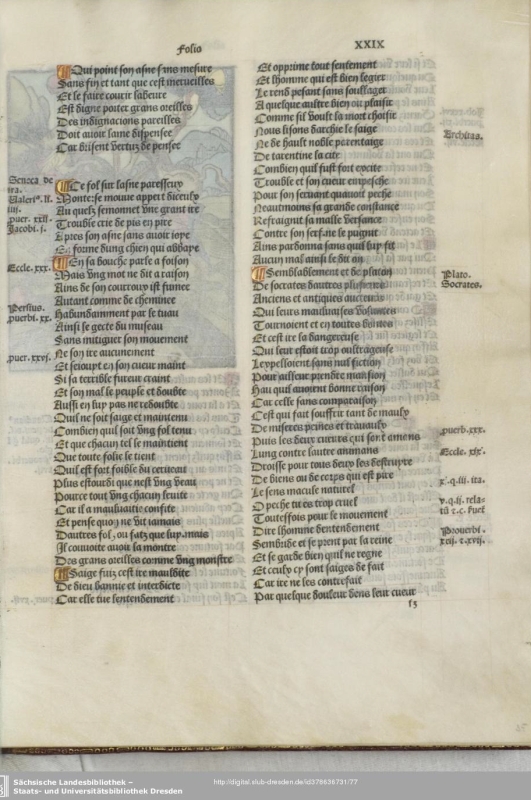 Folio
XXIX
Qui point son asne sans mesure
Sans fin et tant que cest merveilles
Et le faire courir labeure
Est digne porter grans oreilles
Des indignacions pareilles
Doit avoir laine dispensee
Car brisent vertuz de pensee
Seneca de
ira.
Valeri⁹. li.
iiii.
puer. xxii.
Jacobi. i.
Ce fol sur lasne paresseux
Monte: se mouue appert
Au quelz semonnet vng grant ire
Trouble crie de pis en pire
Apres son asne sans avoir ioye
En forme dung chien qui abbaye
Eccle. xxx.
En sa bouche parle a foison
Mais vng mot ne dit a raison
Ains de son courroux ist fumee
Autant comme de cheminee
Persius.
puerbi. xx.
Habundamment par le tuau
Ainsi le gecte du museau
Sans mitiguer son mouement
puer. xxvi.
Ne son ire aucunement
Et seioupt en son cueur maint
Si sa terrible fureur craint
Et son mal le peuple et doubte
Aussi en luy pas ne redoubte
Quil ne soit saige et maintenu
Combien quil soit vng fol tenu
Et que chacun tel le maintient
Que toute folie le tient
Quil est fort foible du cerueau
Plus estourdi que nest vng veau
Pource tout vng chacun leuite
Car il a mauluaitie confite
Et pense quoy ne vit iamais
Dautres fol, ou satz que luy. mais
Il conuoite auoir la monstre
Des grans oreilles comme vng monstre
Saige fuiz cest ire mauldite
De dieu bannie et interdicte
Car elle tue lentendement
Et opprime tout seulement
Et lhomme qui est bien legier
Le rend pesant sans soullager
A quelque aultre bien ou plaisir
Comme sil voust la mort choisir
Nous lisons darchie le saige
Architas.
Ne de hault noble parentaige
De tarentine la cite
Combien quil fust fort excite
Trouble et son cueur empesche
Pour son seruant quauoit peche
Neantmoins sa grande constance
Refraignit sa malle versance
Contre son serf. ne le pugnit
Ains pardonna sans quil luy fit
Aucun mal ainsi le dit on
Semblablement et de platon
Plato.
Socrates.
De socrates dautres plusieurs
Anciens et antiques aucteurs
Qui leurs mauluaises voluntes
Tournoient et en toutes bontes
Et cest ire la dangereuse
Qui leur estoit trop oultrageuse
Lexpelloient sans nul fiction
Pour ailleur prendre mansion
Hau quil auoient bonne raison
Car celle sans comparaison
Cest qui fait souffrir tant de maulx
De miseres peines et trauaulx
puerb. xxx.
Puis les deux cueurs qui sont amens
Lung contre lautre animans
Eccle. xix.
Droisse pour tous deux les destruyre
De biens ou de corps qui est pire
x'. q. iii. ira.
Le sens macule naturel
O peche tu es trop cruel
v. q. ii. rela-
Toutesfois pour le mouement
Dire lhomme dentendement
Prouerbi.
xvii. z. xvii.
Sembride et se prent par la reine
Et se garde bien quil ne regne
Et ceulx cy sont saiges de fait
Car ire ne les contrefait
Par quelque douleur dens leur cueur
f5
Sächsische Landesbibliothek –
Staats- und Universitätsbibliothek Dresden
http://digital.slub-dresden.de/id378636731/77